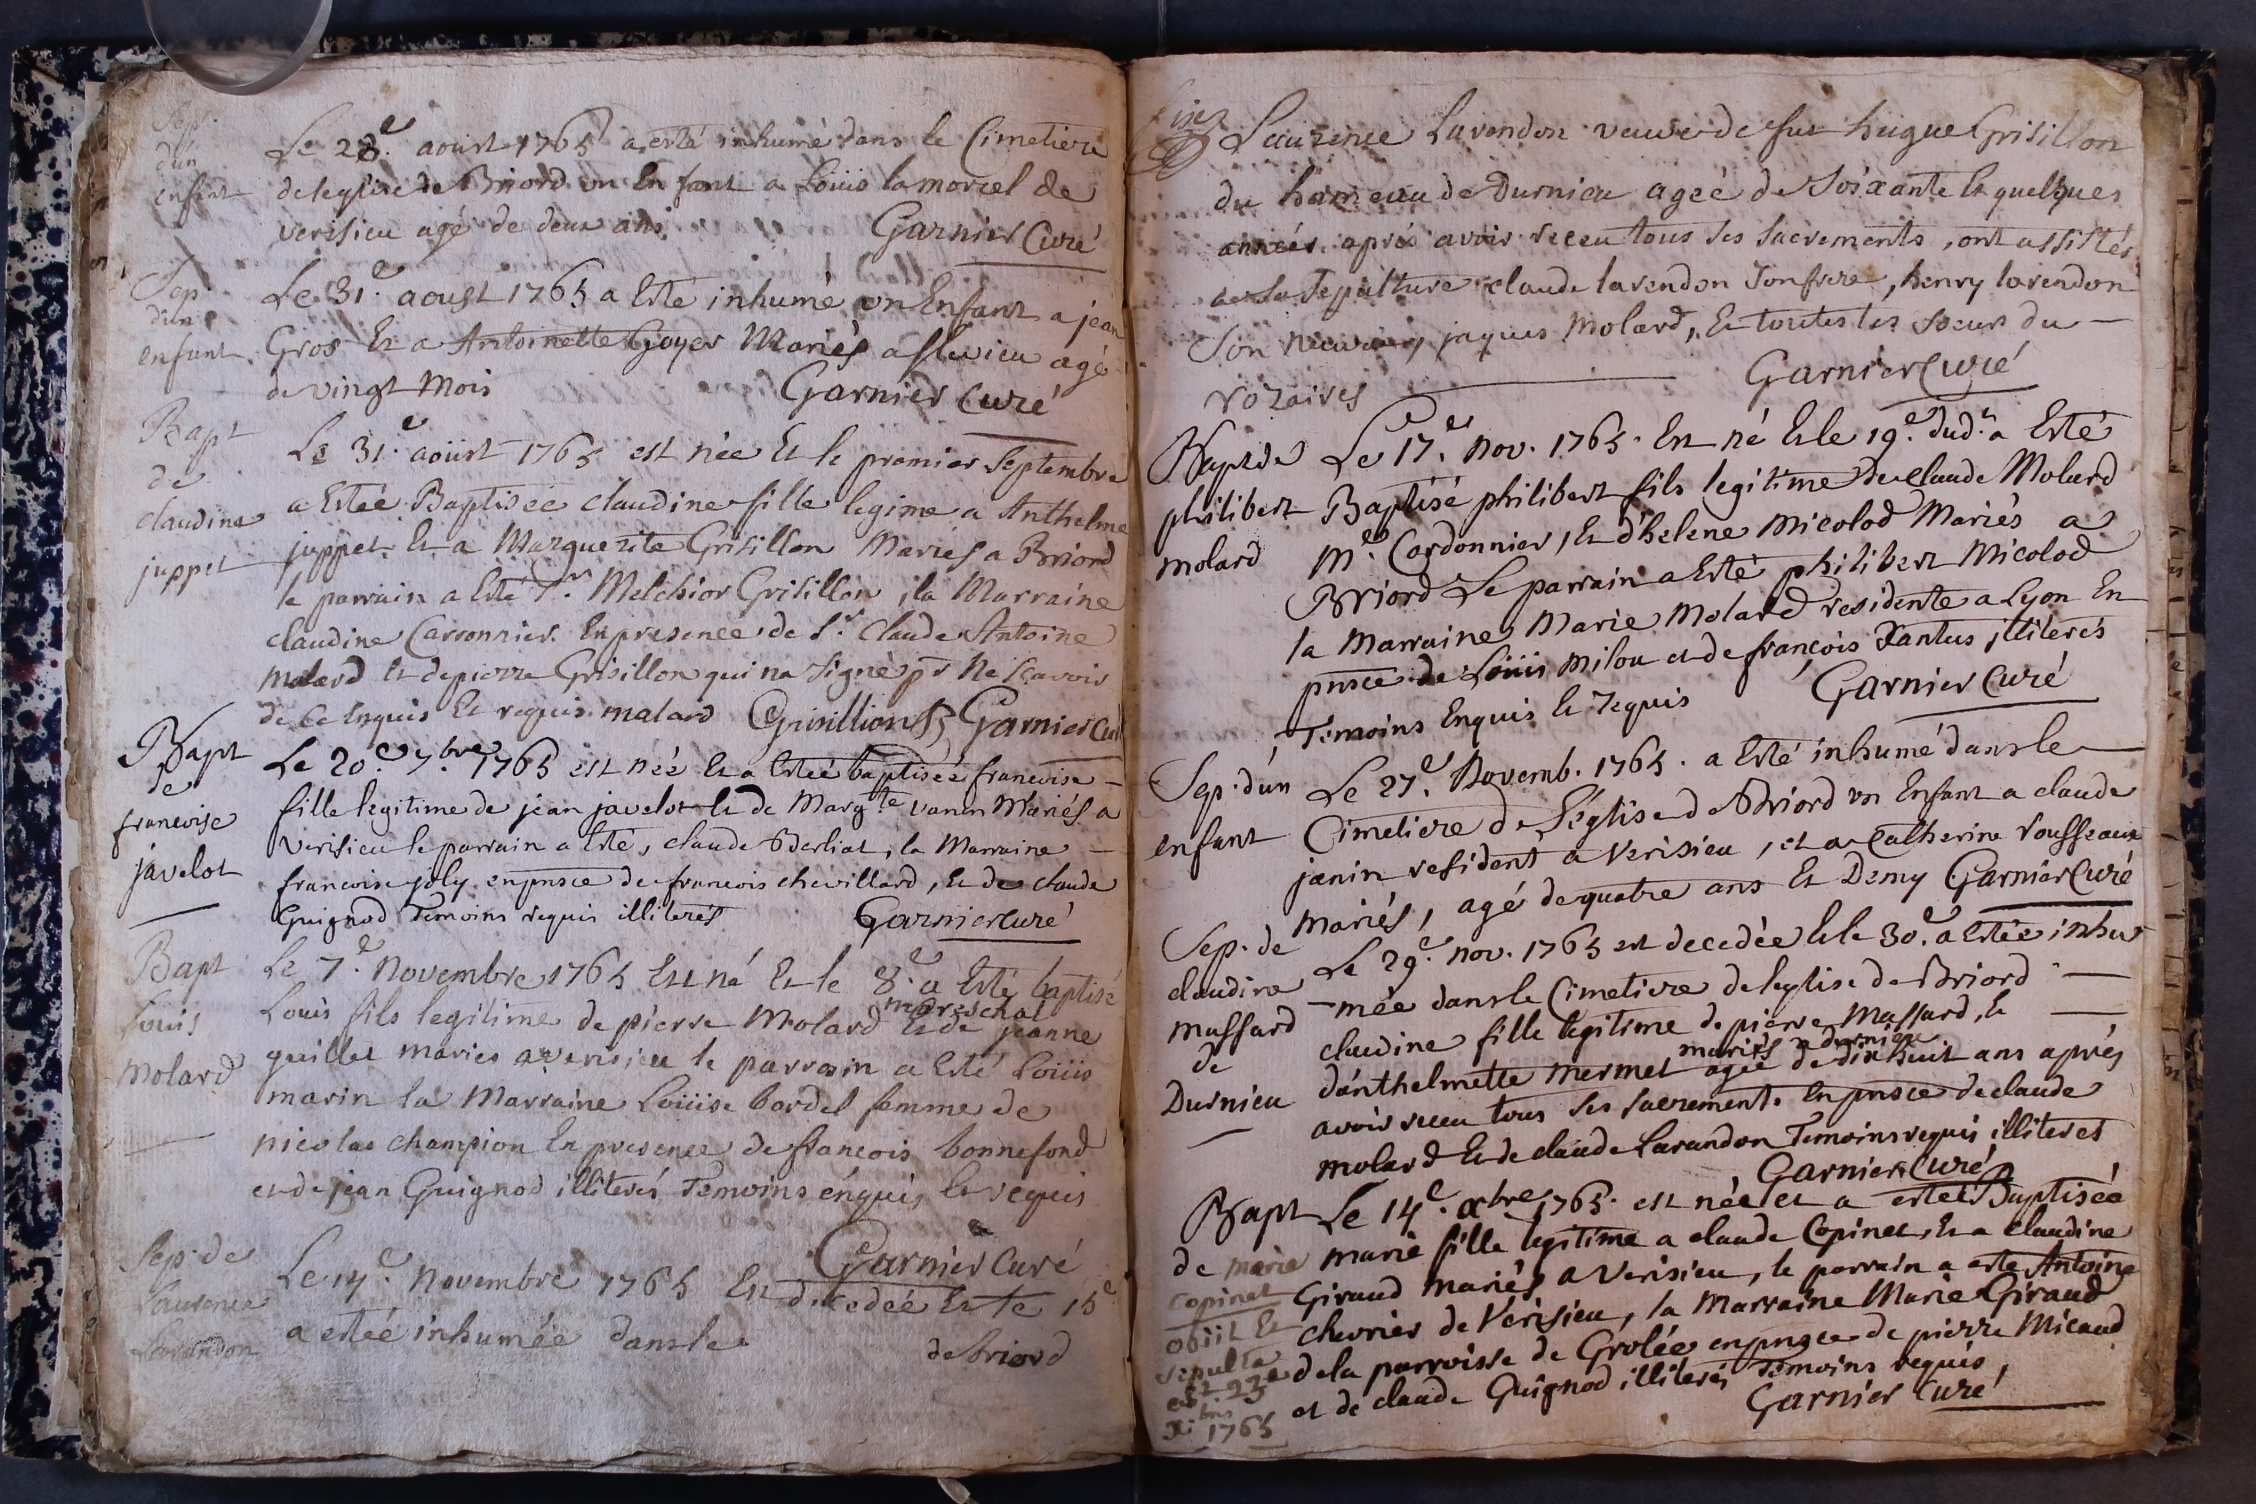 Sep.
d'un
enfant
Le 28.e aoust 1765 a esté inhumé dans le Cimetiere
de leglise de Briord un Enfant a Loüis lamorcel de
verisieu agé de deux ans
Garnier Curé
Sep.
d'un
enfant
Le 31.e aoust 1765 a Esté inhumé un Enfant a jean
Gros Et a Antoinette Goyer Mariés a flevieu agé
de vingt mois
Garnier Curé
Bapt
de
claudine
juppet
Le 31.e aoüst 1765 est née Et le premier Septembre
a Estée Baptisée claudine fille legime a Anthelme
juppet Et a Marguerite Grisillon Mariés a Briord
le parrain a Esté Melchior Grisillon, la Marraine
claudine Carronnier. En presence de S.r claude Antoine
Molard Et de pierre Grisillon qui na signé pr Ne scavoir
de ce Enquis Et requis. malard Grisillion Garnier Curé
Bapt
de
francoise
javelot
Le 20.e 7.bre 1765 est née Et a Estée baptisée francoise
fille legitime de jean javelot Et de Marg.te vanin Mariés a
Verisieu le parrain a Esté, claude Berliat, la Marraine
francoise joly en pnsce de francois chevillard, Et de claude
Guignod Temoins requis illiterés
Garnier curé
Bapt
Louis
Molard
Le 7.e Novembre 1765 Est né Et le 8.e a Esté baptisé
mareschal
Louis fils legitime de pierre Molard Et de jeanne
quillet mariés a verisieu le parrain a Esté Loüis
marin la Marraine Loüise bordel femme de
nicolas champion En presence de francois bonnefond
et de jean Guignod illiterés Temoins énquis Et requis
Garnier Curé
Sep. de
Laurence
Lavandon
Le 14.e Novembre 1765 Est decedeé Et le 15.e
a esteé inhumée dans le
de briord
Laurence Lavendon veuve de feu hugue Grisillon
du hameau de Durnieu ageé de Soixante Et quelques
années aprés avoir receu tous ses sacrements, ont assistés
a sa Sepulture claude lavendon son frere, henry lavendon
Son neuveu, jaques Molard, Et toutes les soeurs du
rozaires
Garnier Curé
Bapt de
philibert
molard
Le 17.e Nov. 1765. Est né Et le 19.e dud.t a Esté
Baptisé philibert fils legitime de claude Molard
M.e Cordonnier, Et d'helene Micolod Mariés a
Briord Le parrain a Esté philibert Micolod
la Marraine Marie Molard residente a Lyon En
pnsce de Loüis Milou et de françois Tantus illiterés
Temoins Enquis Et requis
Garnier Curé
Sep. d'un
enfant
Le 27.e Novemb. 1765. a Esté inhumé dans le
Cimetiere de l'église de Briord un Enfant a claude
janin resident a Verisieu, et a Catherine rousseaux
mariés, agé de quatre ans Et Demy Garnier Curé
Sep. de
claudine
massard
de
Durnieu
Le 29.e Nov. 1765 est decedée Et le 30.e a Estée inhu
-mée dans le Cimetiere de leglise de Briord
claudine fille legitime de pierre Massard, Et
mariés a durnieu
d'anthelmette Mermet ageé de dix huit ans aprés
avoir receu tous ses sacrement. En pnsce de claude
molard Et de claude Lavandon Temoins requis illiteres
Garnier Curé
Bapt
de marie
Copinet
obiit Et
sepulta
est 23
x.bris
1765
Le 14.e xbre 1765. est née et a estée Baptisée
marie fille legitime a claude Copinet, Et a claudine
Giraud mariés a Verisieu, le parrain a esté Antoine
chevrier de Vérisieu, la Marraine Marie Giraud
de la parroisse de Grolée en pnsce de pierre Micaud
et de claude Guignod illiterés Temoins requis,
Garnier Curé